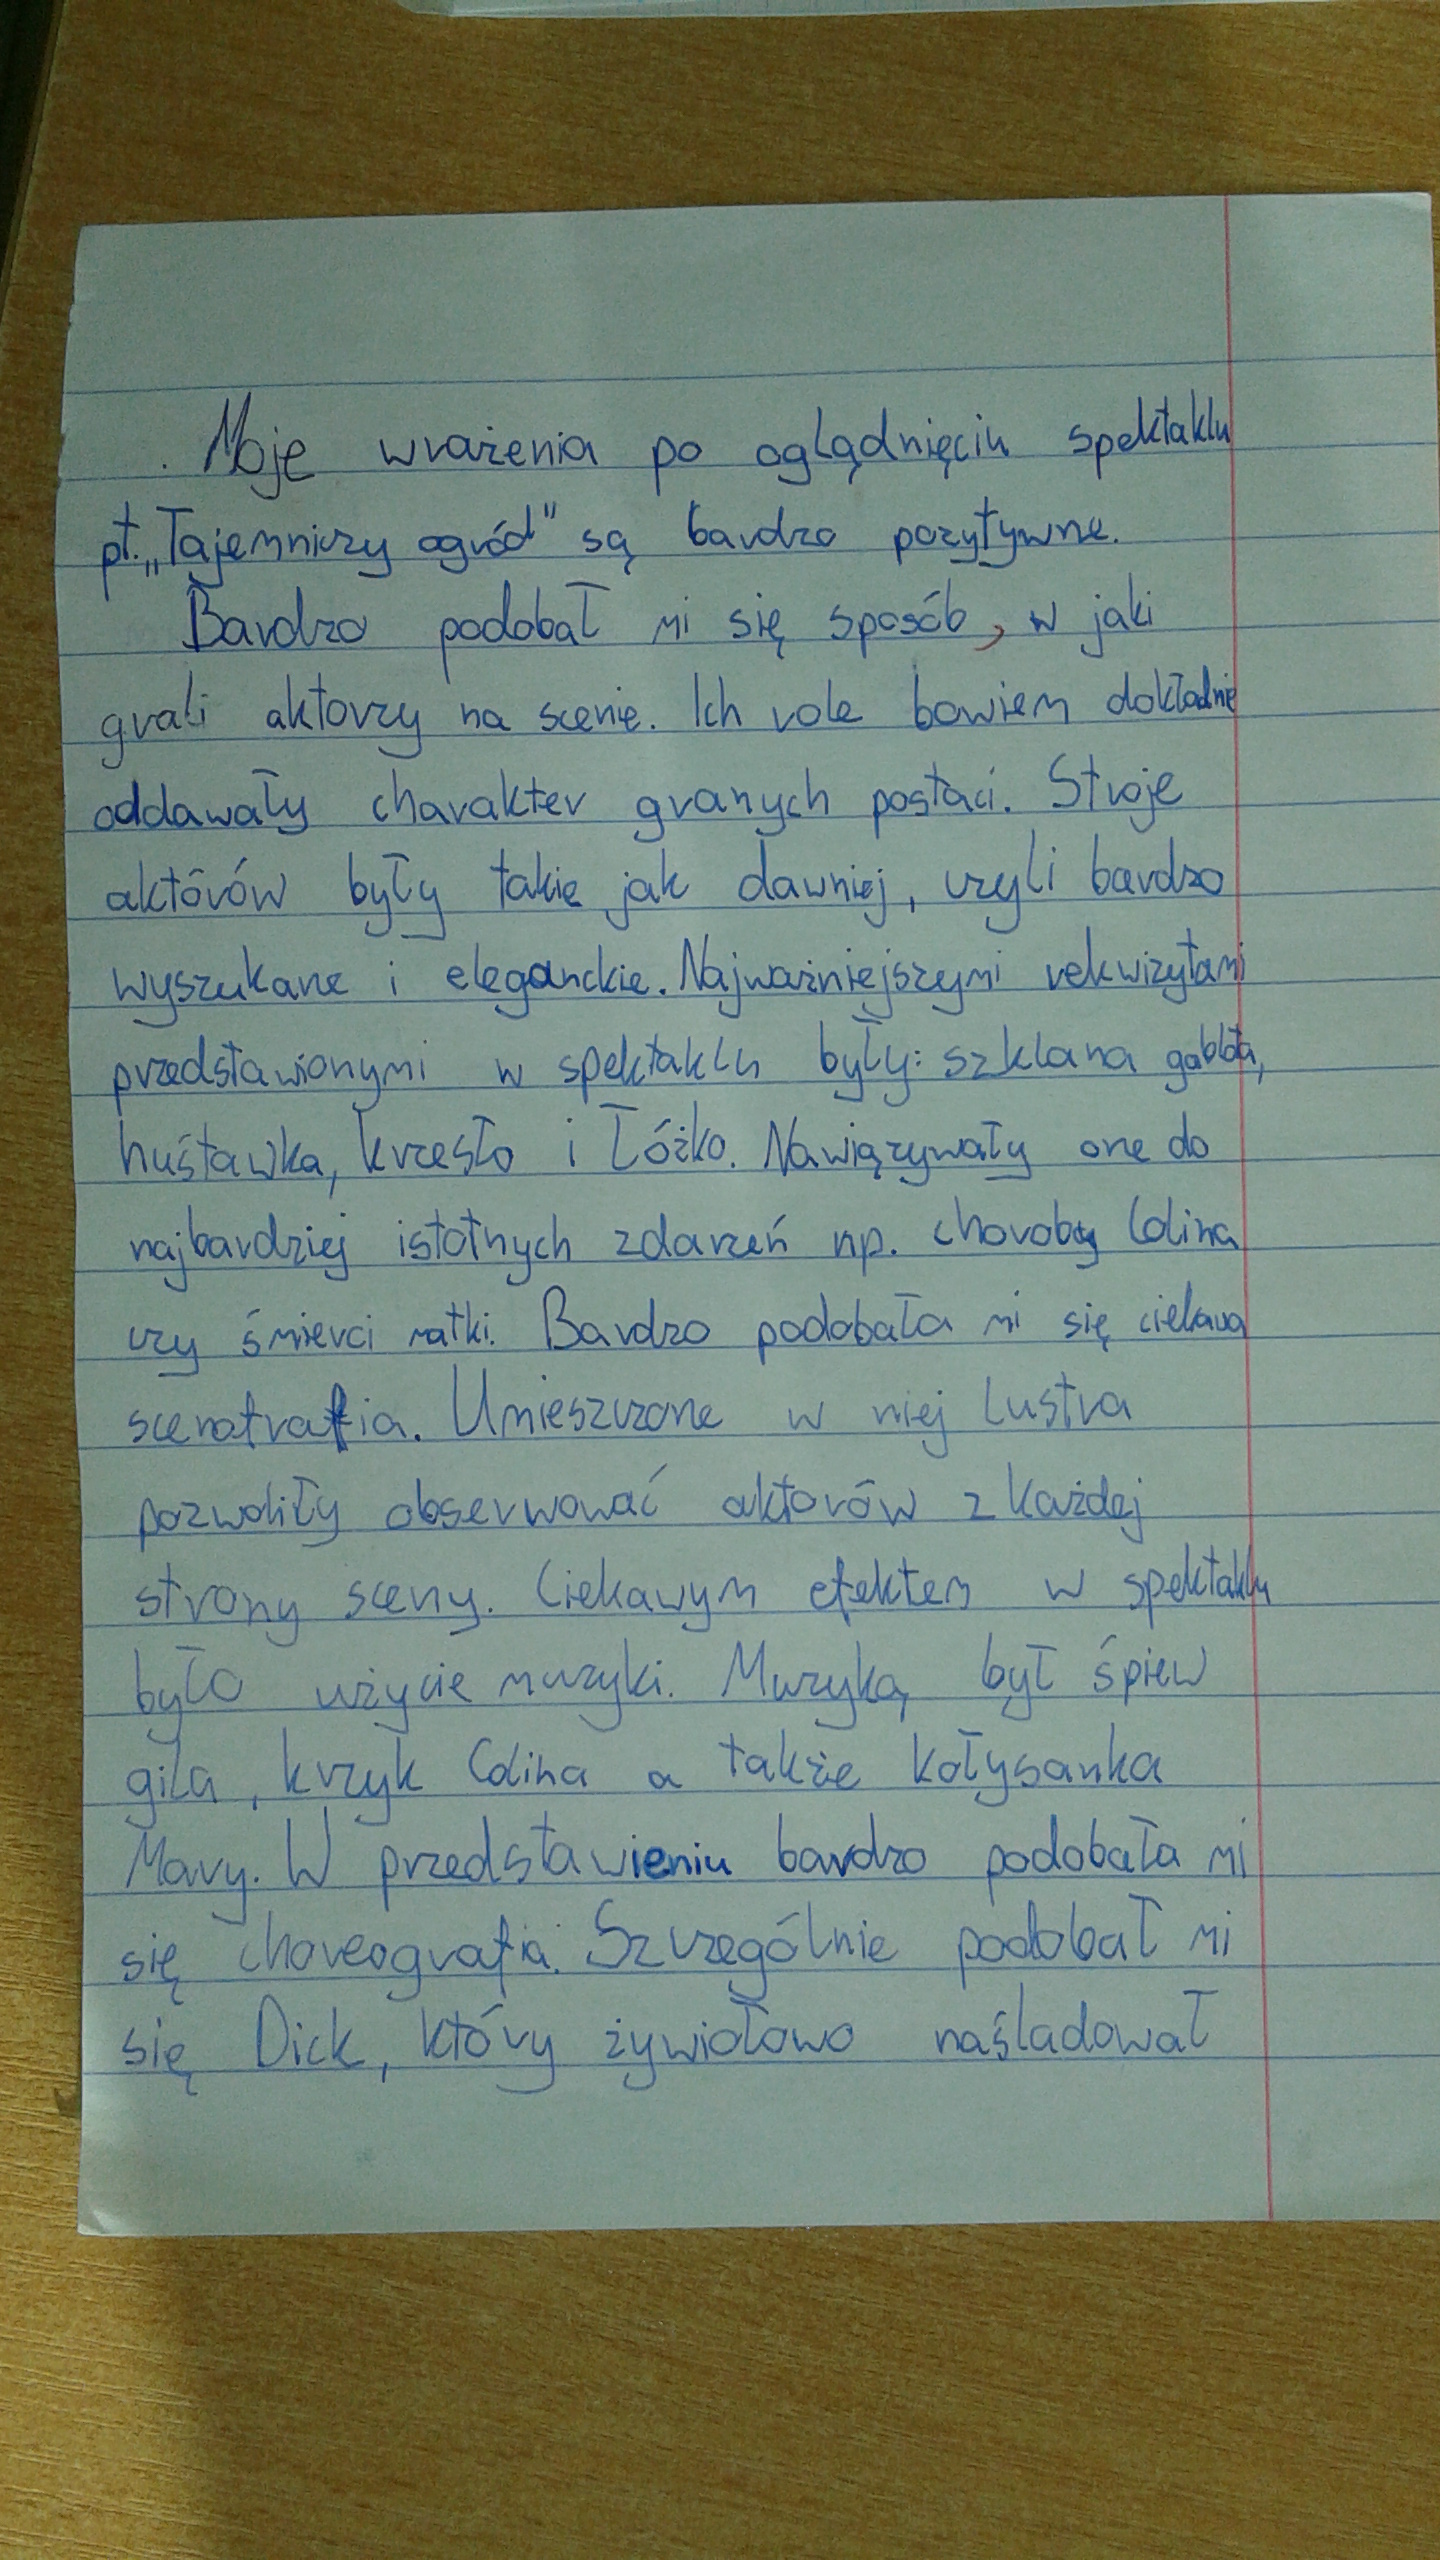 Moje wrażenia po oglądnięciu spektaklu
pt. „Tajemniczy ogród" są bardzo pozytywne.
Bardzo podobał mi się sposób, w jaki
grali aktorzy na scenie. Ich role bowiem dokładnie
oddawały charakter granych postaci. Stroje
aktórów były takie jak dawniej, czyli bardzo
wyszukane i eleganckie. Najważniejszymi rekwizytami
przedstawionymi w spektaklu były: szklana gablota,
huśtawka, krzesło i łóżko. Nawiązywały one do
najbardziej istotnych zdarzeń np. choroby Colina
czy śmierci matki. Bardzo podobała mi się ciekawa
scenotrafia. Umieszczone w niej lustra
pozwoliły obserwować aktorów z każdej
strony sceny. Ciekawym efektem w spektaklu
było użycie muzyki. Muzyką był śpiew
gila, krzyk Colina a także kołysanka
Mary. W przedstawieniu bardzo podobała mi
się choreografia. Szczególnie podobał mi
się Dick, który żywiołowo naśladował